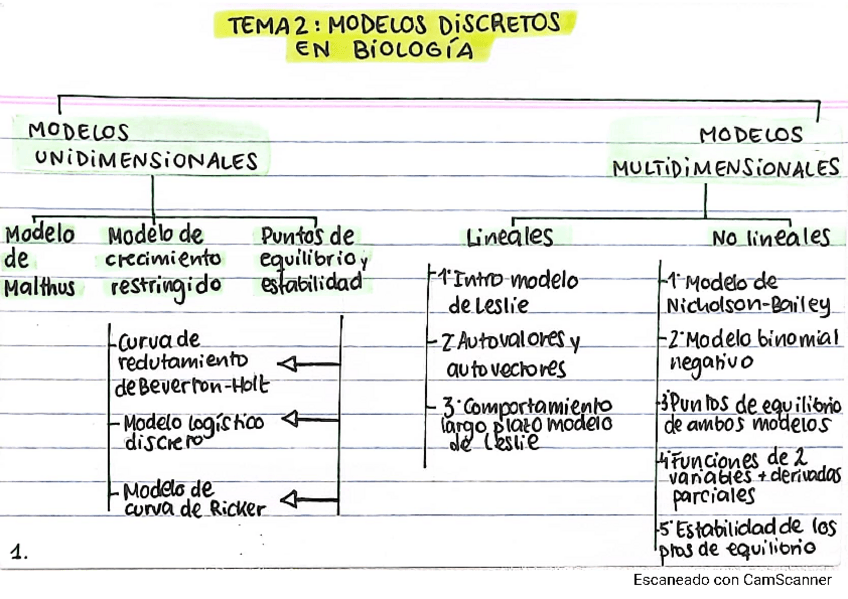 TEMA 2: MODELOS DISCRETOS
EN BIOLOGÍA
MODELOS
UNIDIMENSIONALES
Modelo
de
Malthus
Modelo de
crecimiento
restringido
Puntos de
equilibrio y
estabilidad
Curva de
redutamiento
de Beverton-Holt
Modelo logístico
discreto
Modelo de
curva de Ricker
MODELOS
MULTIDIMENSIONALES
Lineales
1· Intro modelo
de Leslie
2· Autovalores y
autovectores
3· Comportamiento
largo plazo modelo
de Leslie
No lineales
1· Modelo de
Nicholson-Bailey
2· Modelo binomial
negativo
3· Puntos de equilibrio
de ambos modelos
4· Funciones de 2
variables + derivadas
parciales
5· Estabilidad de los
ptos de equilibrio
1.
Escaneado con CamScanner